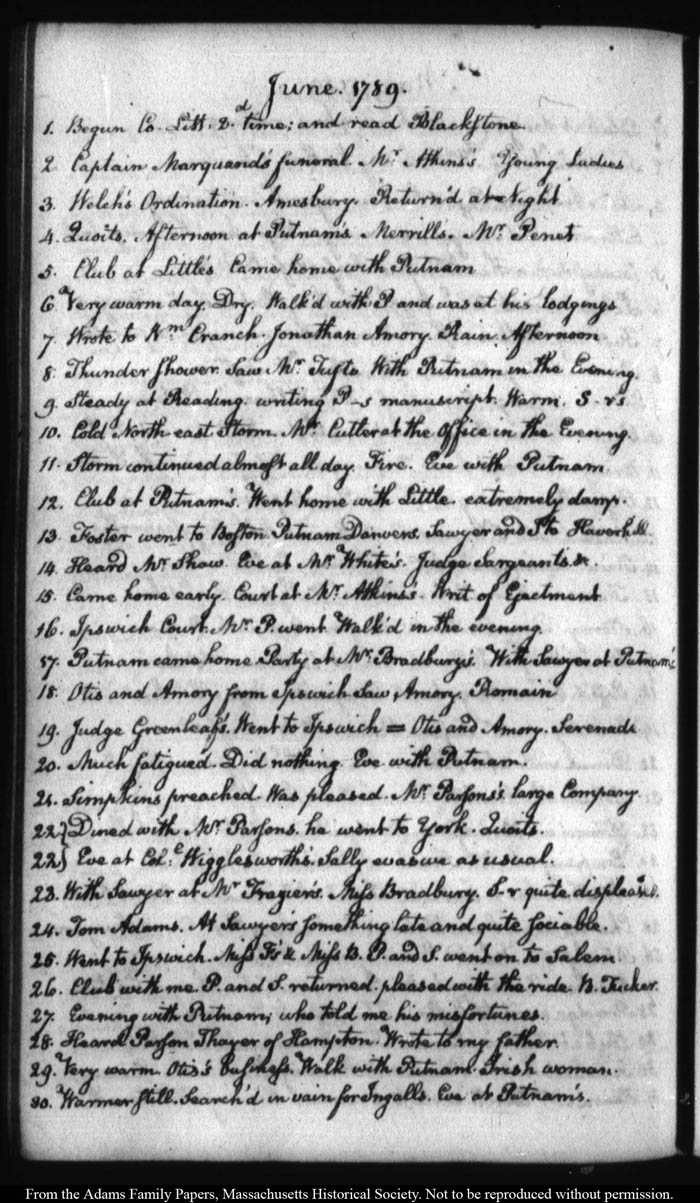 June. 1789.
1. Begun Co. Litt. 2.d time; and read Blackstone.
2. Captain Marquand's funeral. Mr. Atkins's. Young Ladies
3. Welch's Ordination. Amesbury. Return'd at Night
4. Quoits. Afternoon at Putnam's. Merrills. Mr. Penet
5. Club at Little's Came home with Putnam
6. Very warm day. Dry. Walk'd with P and was at his lodgings
7. Wrote to Wm. Cranch. Jonathan Amory. Rain. Afternoon
8. Thunder shower. Saw Mr. Tufts. With Putnam in the Evening.
9. Steady at Reading. writing P-s manuscript. Warm. S-rs
10. Cold North east Storm. Mr. Cutler at the Office in the Evening.
11. Storm continued almost all day. Fire. Eve with Putnam.
12. Club at Putnam's. Went home with Little. extremely damp.
13. Foster went to Boston Putnam Danvers. Sawyer and I to Haverhill.
14. Heard Mr. Shaw. Eve at Mr. White's. Judge Sargeant's. &c.
15. Came home early. Court at Mr. Atkins's. Writ of Ejectment
16. Ipswich Court. Mr. P. went. Walk'd in the evening.
17. Putnam came home. Party at Mr. Bradbury's. With Sawyer at Putnam's
18. Otis and Amory from Ipswich Saw Amory. Romain
19. Judge Greenleaf's. Went to Ipswich = Otis and Amory. Serenade
20. Much fatigued. Did nothing. Eve with Putnam.
21. Simpkins preached. Was pleased. Mr. Parsons's large Company.
22} Dined with Mr. Parsons. he went to York. Quoits.
22} Eve at Col.e Wigglesworth's. Sally evasive as usual.
23. With Sawyer at Mr. Frazier's. Miss Bradbury. S-r quite displeas'd.
24. Tom Adams. At Sawyer's something late and quite sociable.
25. Went to Ipswich. Miss F's & Miss B. P. and S. went on to Salem.
26. Club with me. P. and S. returned. pleased with the ride. B. Tucker.
27. Evening with Putnam; who told me his misfortunes.
28. Heard Parson Thayer of Hampton. Wrote to my father.
29. Very warm. Otis's business. Walk with Putnam. Irish woman.
30. Warmer still. Search'd in vain for Ingalls. Eve at Putnam's.
From the Adams Family Papers, Massachusetts Historical Society. Not to be reproduced without permission.